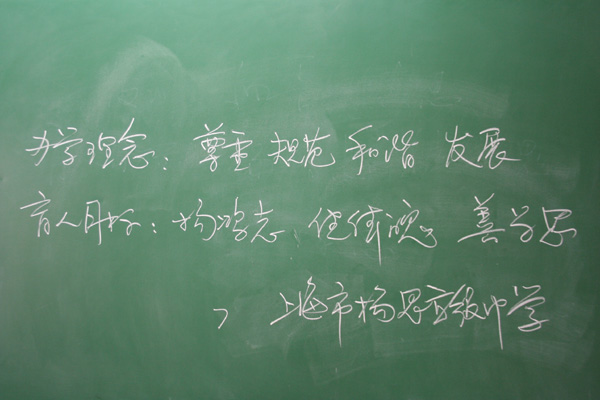 办学理念：尊重 规范 和谐 发展
育人目标：扬鸿志 善学思
上海市杨思高级中学